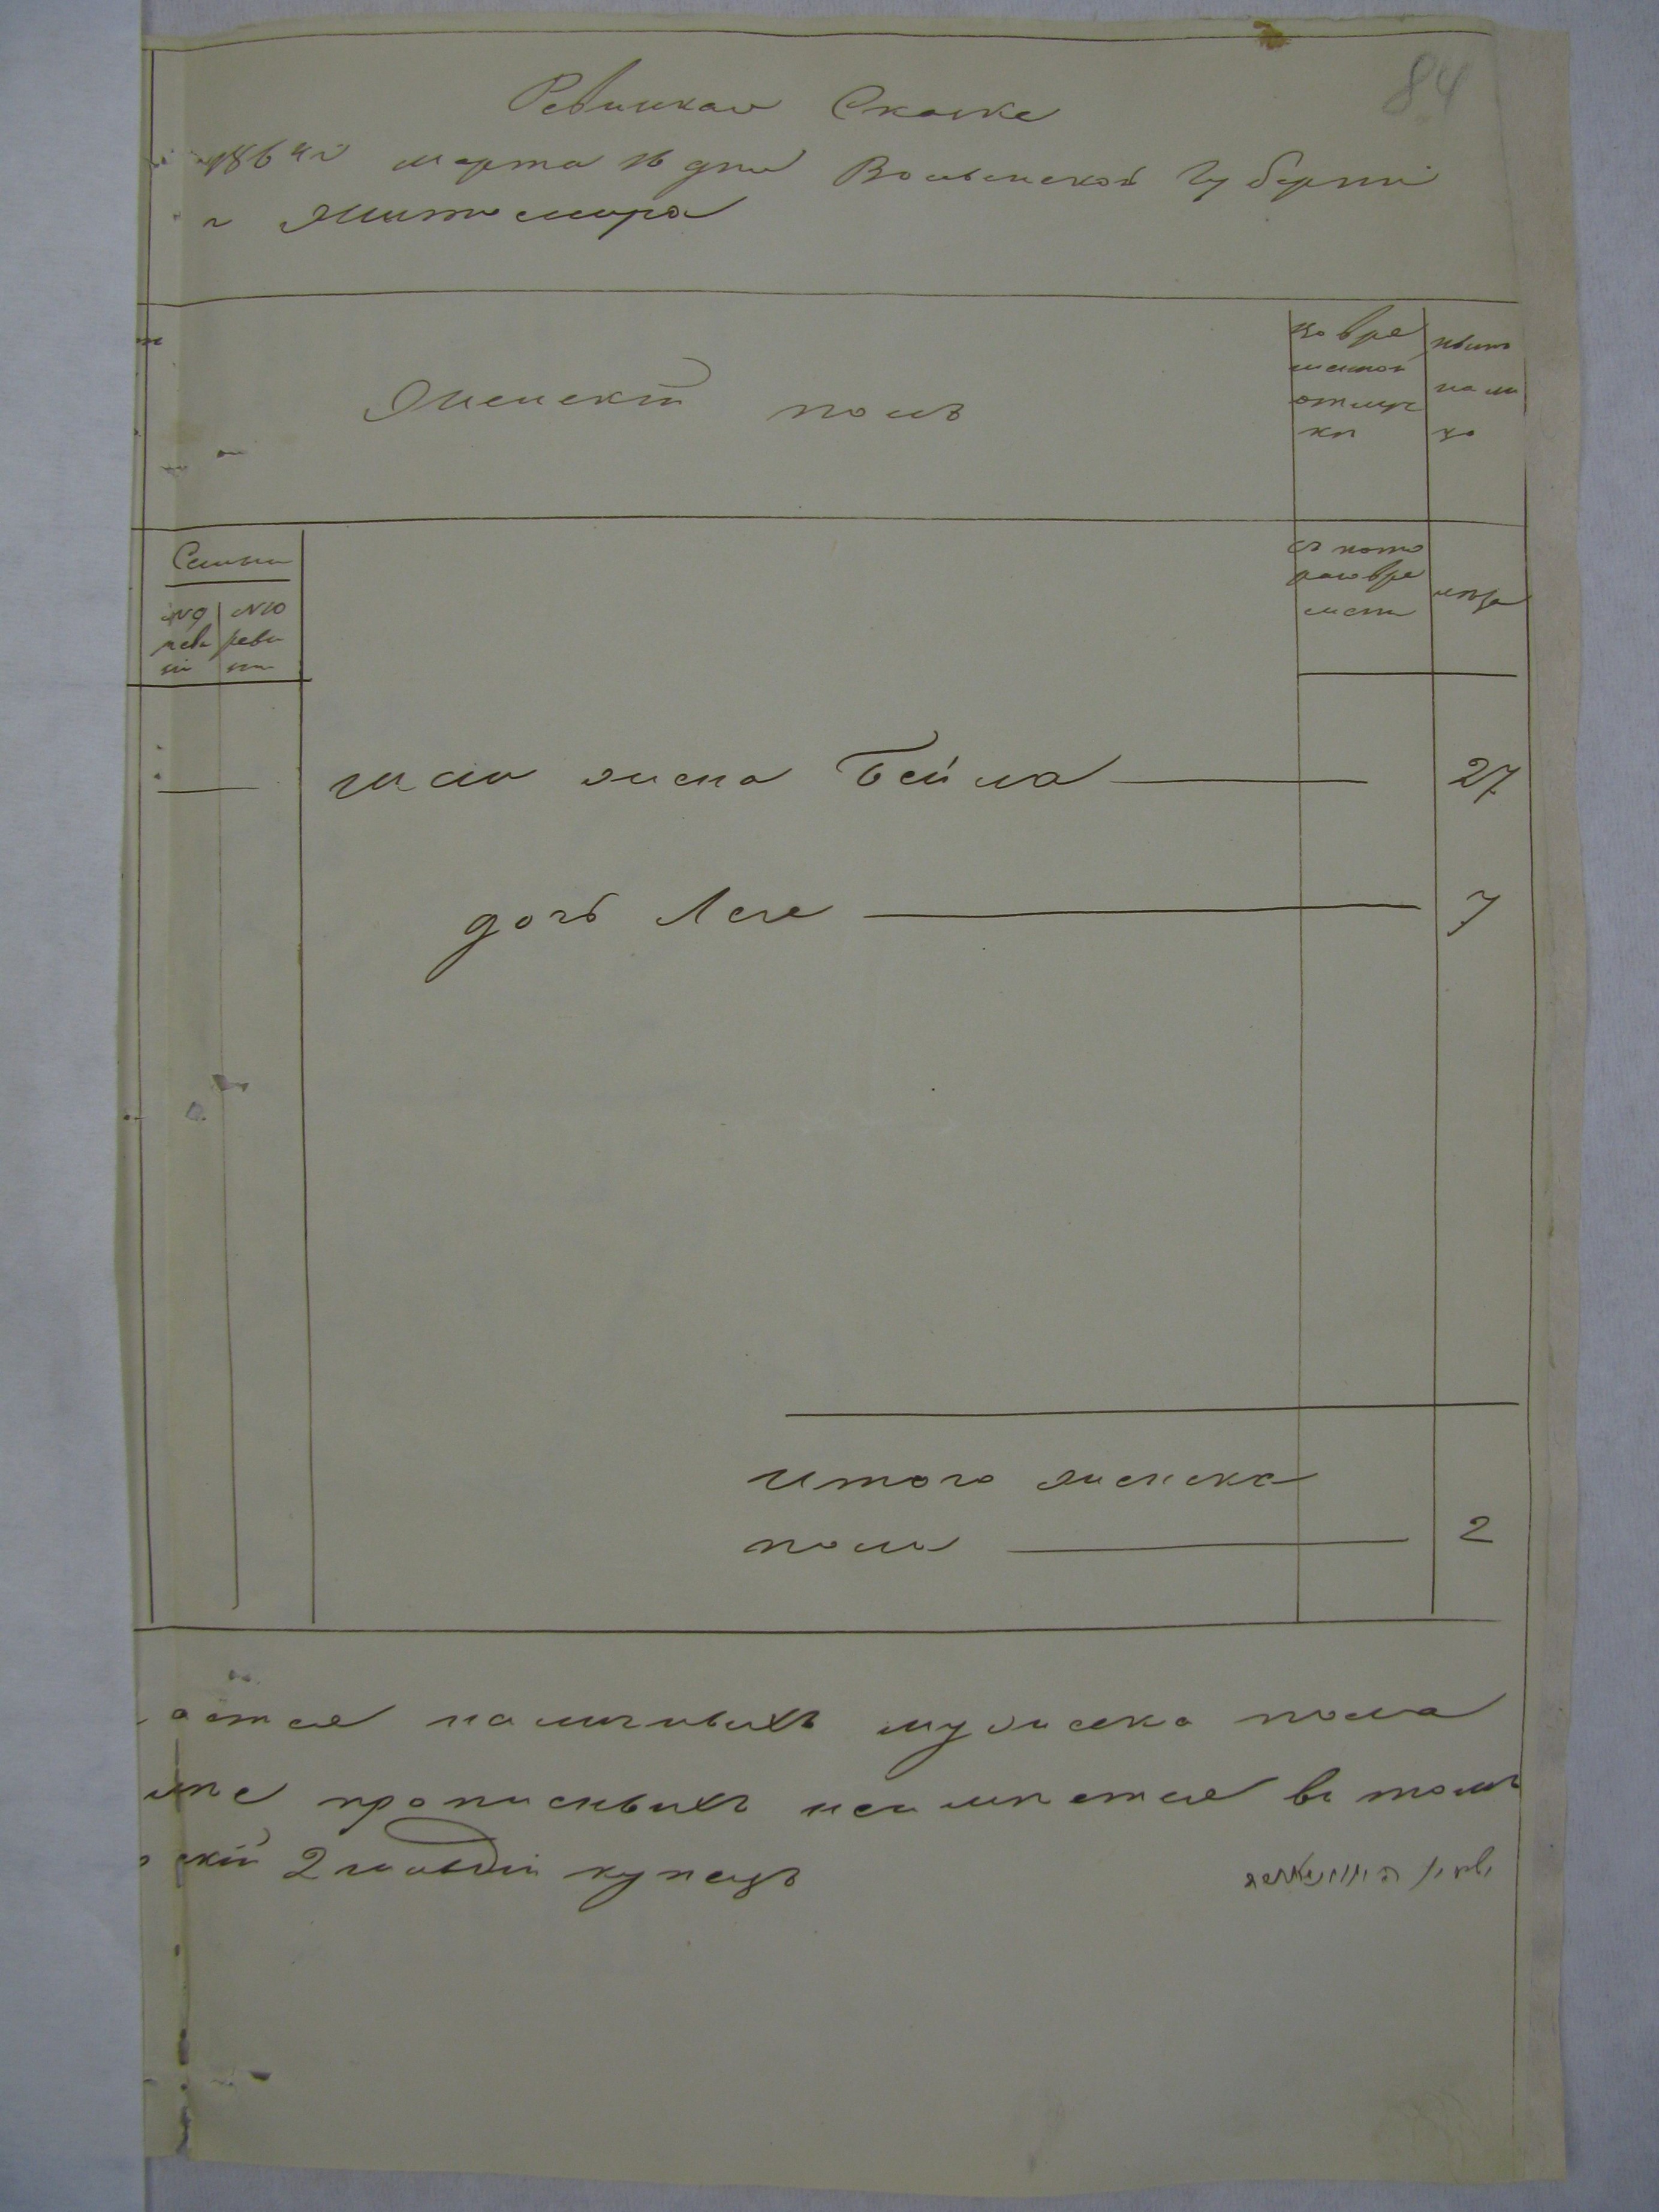 84
Ревизкая Сказка
1864г марта 16 дня Волынской Губерніи
г Житомира
Женскій полъ
во вре
менной
отлуч
ки
нынѣ
на ли
цо
Семьи
№9
реви
зіи
№10
реви
зіи
съ кото
раго вре
мени
лѣта
жена Бейла 27
дочь Лея 7
итого женска
пола 2
ается наличныхъ мужеска пола
прописныхъ неимѣется въ томъ
скій 2 гильдіи купецъ